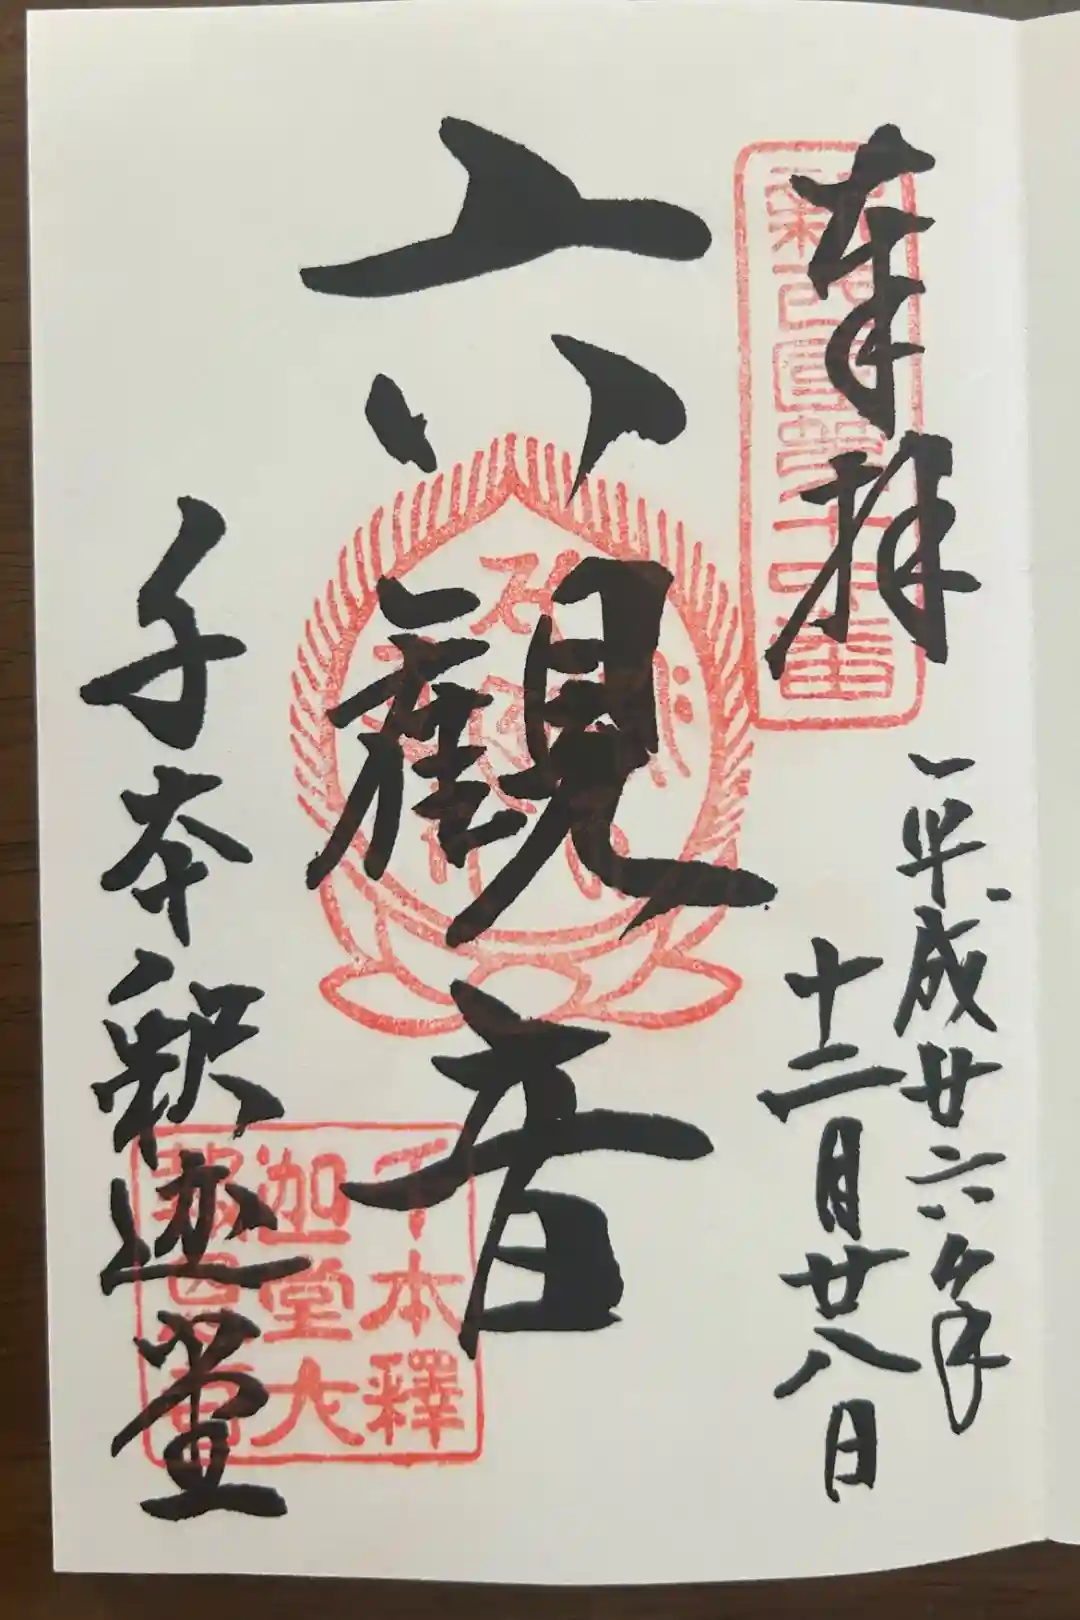 奉拝
平成廿六年
十二月廿八日
六観音
千本釈迦堂
千本釋
迦堂大
報恩寺